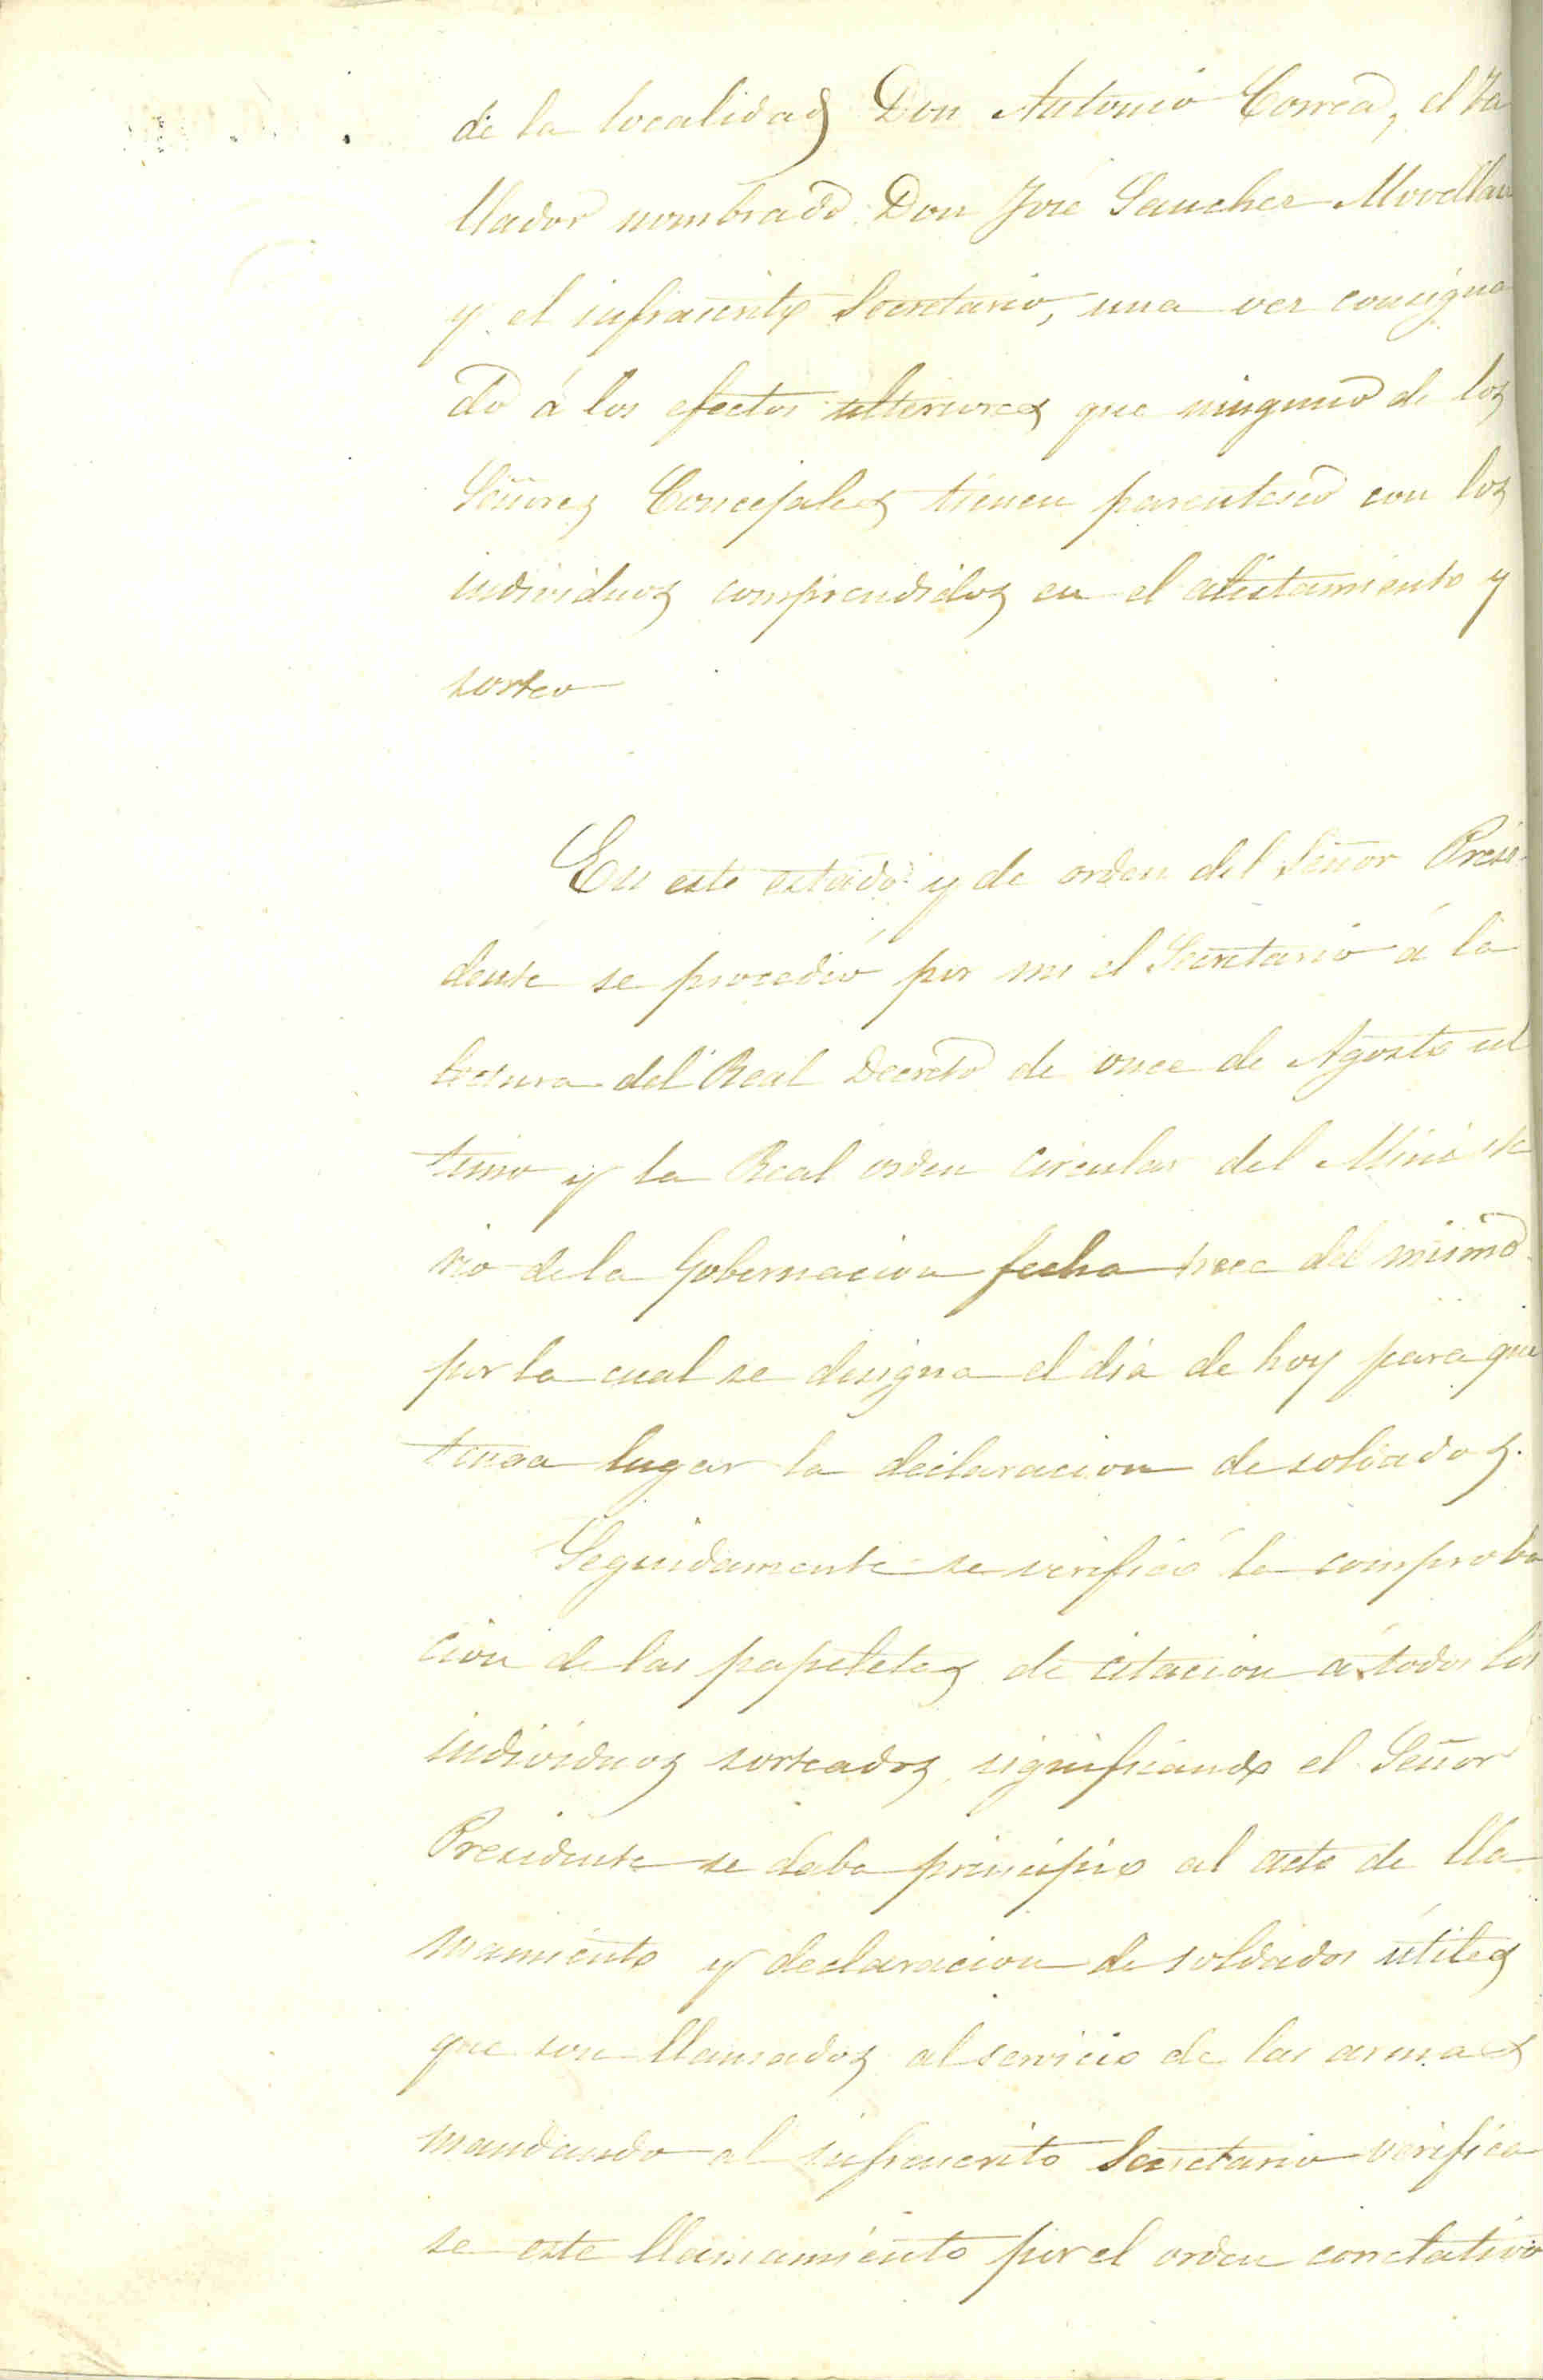 de la localidad Don Antonio Correa, el ta
llador nombrado Don José Sanchez Movellan
y el infrascrito Secretario, una vez consigna
do á los efectos ulteriores que ninguno de los
Señores Concejales tienen parentesco con los
individuos comprendidos en el alistamiento y
sorteo
En este estado y de orden del Señor Presi
dente se procedió por mi el Secretario á la
lectura del Real Decreto de once de Agosto ul
timo y la Real orden circular del Ministe
rio de la Gobernacion fecha trece del mismo
por la cual se designa el dia de hoy para que
tenga lugar la declaracion de soldados.
Seguidamente se verificó la comproba
cion de las papeletas de citacion á todos los
individuos sorteados, significando el Señor
Presidente se daba principio al acto de lla
mamiento y declaracion de soldados útiles
que son llamados al servicio de las armas
mandando al infrascrito Secretario verifica
se este llamamiento por el orden correlativo